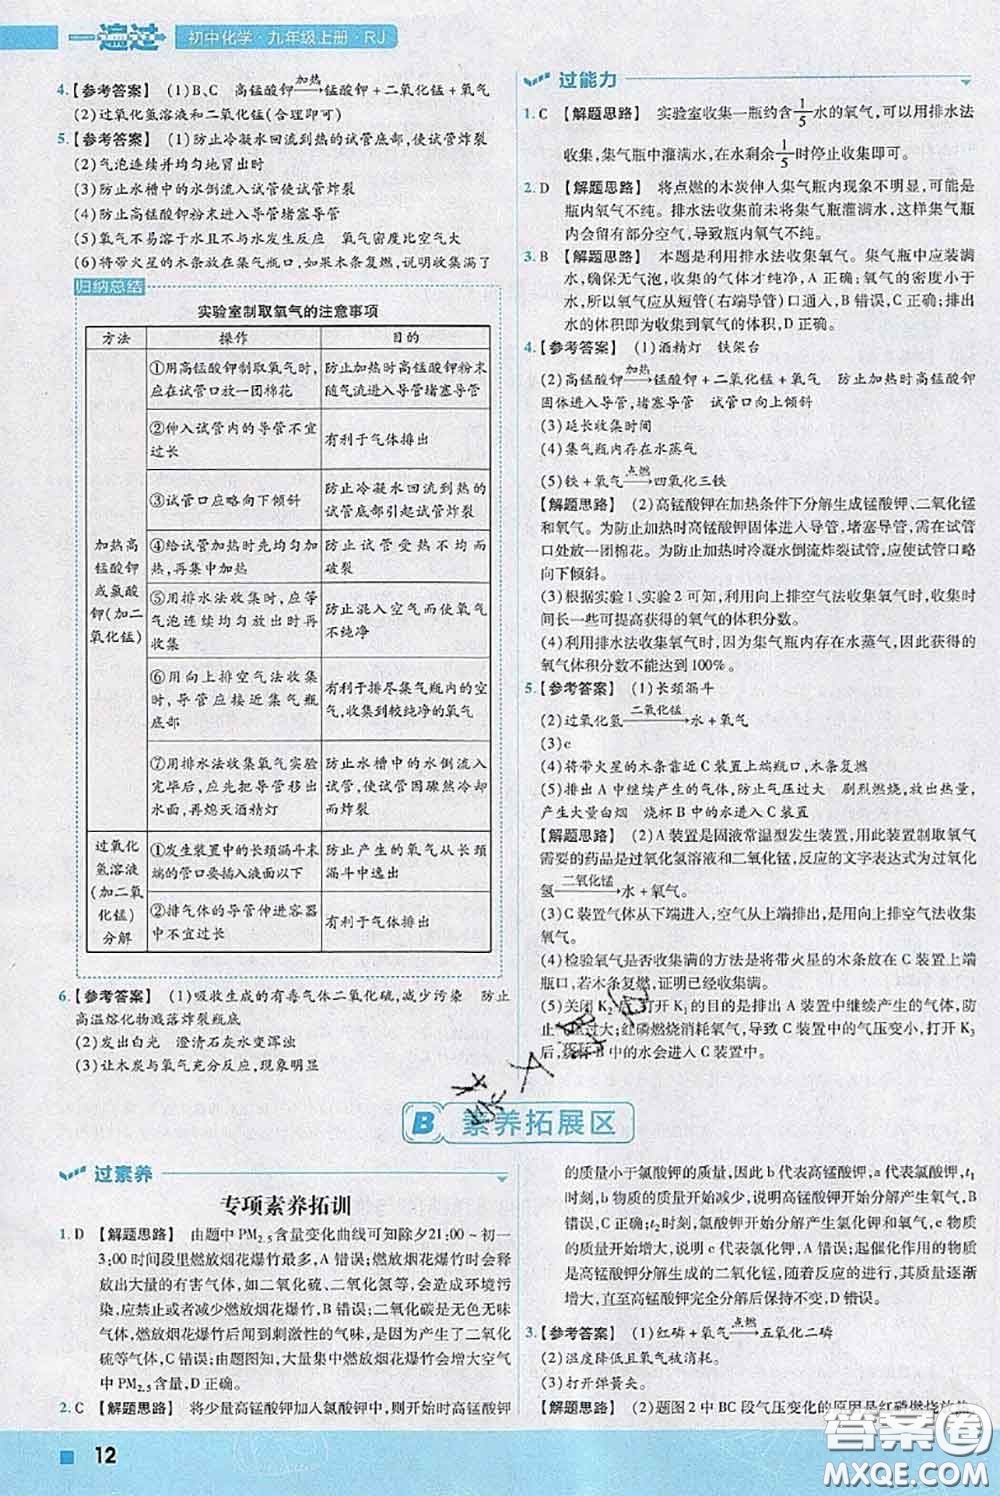 一遍过 初中化学·九年级上册·RJ
4.【参考答案】 (1)B、C 高锰酸钾—加热→锰酸钾+二氧化锰+氧气
(2)过氧化氢溶液和二氧化锰(合理即可)
5.【参考答案】 (1)防止冷凝水回流到热的试管底部,使试管炸裂
(2)气泡连续并均匀地冒出时
(3)防止水槽中的水倒流入试管使试管炸裂
(4)防止高锰酸钾粉末进入导管堵塞导管
(5)氧气不易溶于水且不与水发生反应 氧气密度比空气大
(6)将带火星的木条放在集气瓶口,如果木条复燃,说明收集满了
归纳总结
实验室制取氧气的注意事项
方法 操作 目的
加热高
锰酸钾
或氯酸
钾(加二
氧化锰)
①用高锰酸钾制取氧气时,
应在试管口放一团棉花
防止加热时高锰酸钾粉末
随气流进入导管堵塞导管
②伸入试管内的导管不宜
过长
有利于气体排出
③试管口应略向下倾斜
防止冷凝水回流到热的试
管底部引起试管炸裂
④给试管加热时先均匀加
热,再集中加热
防止试管受热不均而
破裂
⑤用排水法收集时,应等
气泡连续均匀放出时再
收集
防止混入空气而使氧气
不纯净
⑥用向上排空气法收集
时,导管应接近集气瓶
底部
有利于排尽集气瓶内的空
气,收集到较纯净的氧气
⑦用排水法收集氧气实验
完毕后,应先把导管移出
水面,再熄灭酒精灯
防止水槽中的水倒流入试
管,使试管因骤然冷却
而炸裂
过氧化
氢溶液
(加二氧
化锰)
分解
①发生装置中的长颈漏斗末
端的管口要插入液面以下
防止产生的氧气从长颈
漏斗中逸出
②排气体的导管伸进容器
中不宜过长
有利于气体排出
6.【参考答案】 (1)吸收生成的有毒气体二氧化硫,减少污染 防止
高温熔化物溅落炸裂瓶底
(2)发出白光 澄清石灰水变浑浊
(3)让木炭与氧气充分反应,现象明显
过能力
1.C 【解题思路】 实验室收集一瓶约含1/5水的氧气,可以用排水法
收集,集气瓶中灌满水,在水剩余1/5时停止收集即可。
2.D 【解题思路】 将点燃的木炭伸入集气瓶内现象不明显,可能是
瓶内氧气不纯。排水法收集前未将集气瓶灌满水,这样集气瓶
内会留有部分空气,导致瓶内氧气不纯。
3.B 【解题思路】 本题是利用排水法收集氧气。集气瓶中应装满
水,确保无气泡,收集的气体才纯净,A正确;氧气的密度小于
水,所以氧气应从短管(右端导管)口通入,B错误,C正确;排出
水的体积即为收集到氧气的体积,D正确。
4.【参考答案】 (1)酒精灯 铁架台
(2)高锰酸钾—加热→锰酸钾+二氧化锰+氧气 防止加热时高锰酸钾
固体进入导管,堵塞导管 试管口向上倾斜
(3)延长收集时间
(4)集气瓶内存在水蒸气
(5)铁+氧气—点燃→四氧化三铁
【解题思路】 (2)高锰酸钾在加热条件下分解生成锰酸钾、二氧化锰
和氧气。为防止加热时高锰酸钾固体进入导管,堵塞导管,需在试管
口处放一团棉花。为防止加热时冷凝水倒流炸裂试管,应使试管口略
向下倾斜。
(3)根据实验1、实验2可知,利用向上排空气法收集氧气时,收集时
间长一些可提高获得的氧气的体积分数。
(4)利用排水法收集氧气时,因为集气瓶内存在水蒸气,因此获得的
氧气体积分数不能达到100%。
5.【参考答案】 (1)长颈漏斗
(2)过氧化氢—二氧化锰→水+氧气
(3)c
(4)将带火星的木条靠近C装置上端瓶口,木条复燃
(5)排出A中继续产生的气体,防止气压过大 剧烈燃烧,放出热量,
产生大量白烟 烧杯B中的水进入C装置
【解题思路】 (2)A装置是固液常温型发生装置,用此装置制取氧气
需要的药品是过氧化氢溶液和二氧化锰,反应的文字表达式为过氧化
氢—二氧化锰→水+氧气。
(3)C装置气体从下端进入,空气从上端排出,是用向上排空气法收集
氧气。
(4)检验氧气是否收集满的方法是将带火星的木条放在C装置上端
瓶口,若木条复燃,证明已经收集满。
(5)关闭K2后,打开K1的目的是排出A装置中继续产生的气体,防
止气压过大;红磷燃烧消耗氧气,导致C中的气压变小,打开K3
后,烧杯B中的水会进入C装置中。
B 素养拓展区
过素养
专项素养拓训
1.D 【解题思路】 由题中PM2.5含量变化曲线可知除夕21:00~初一
3:00时间段里燃放烟花爆竹最多,A错误;燃放烟花爆竹时会释
放出大量的有害气体,如二氧化硫、二氧化氮等,会造成环境污
染,应禁止或者减少燃放烟花爆竹,B错误;二氧化碳是无色无味
气体,所以燃放烟花爆竹后闻到刺激性的气味,是因为产生了二氧化
硫等气体,C错误;由题图知,大量集中燃放烟花爆竹会增大空气
中PM2.5含量,D正确。
2.C 【解题思路】 将少量高锰酸钾加入氯酸钾中,则开始时高锰酸钾
的质量小于氯酸钾的质量,因此b代表高锰酸钾,a代表氯酸钾,t1
时刻,b物质的质量开始减少,说明高锰酸钾开始分解产生氧气,但
是氯酸钾没有;t2时刻,氯酸钾开始发生分解反应生成氯化钾和氧气,氧气的
质量开始增大,说明c代表氯化钾,A、B错误;起催化作用的物质
是高锰酸钾分解生成的二氧化锰,随着反应的进行,其质量逐渐
增大,直至高锰酸钾完全分解后保持不变,D错误。
3.【参考答案】 (1)红磷+氧气—点燃→五氧化二磷
(2)温度降低且氧气被消耗。
(3)打开弹簧夹。
【解题思路】 (2)题图2中BC段气压变化的原因是红磷燃烧放热
12
答案圈
MXQE.COM